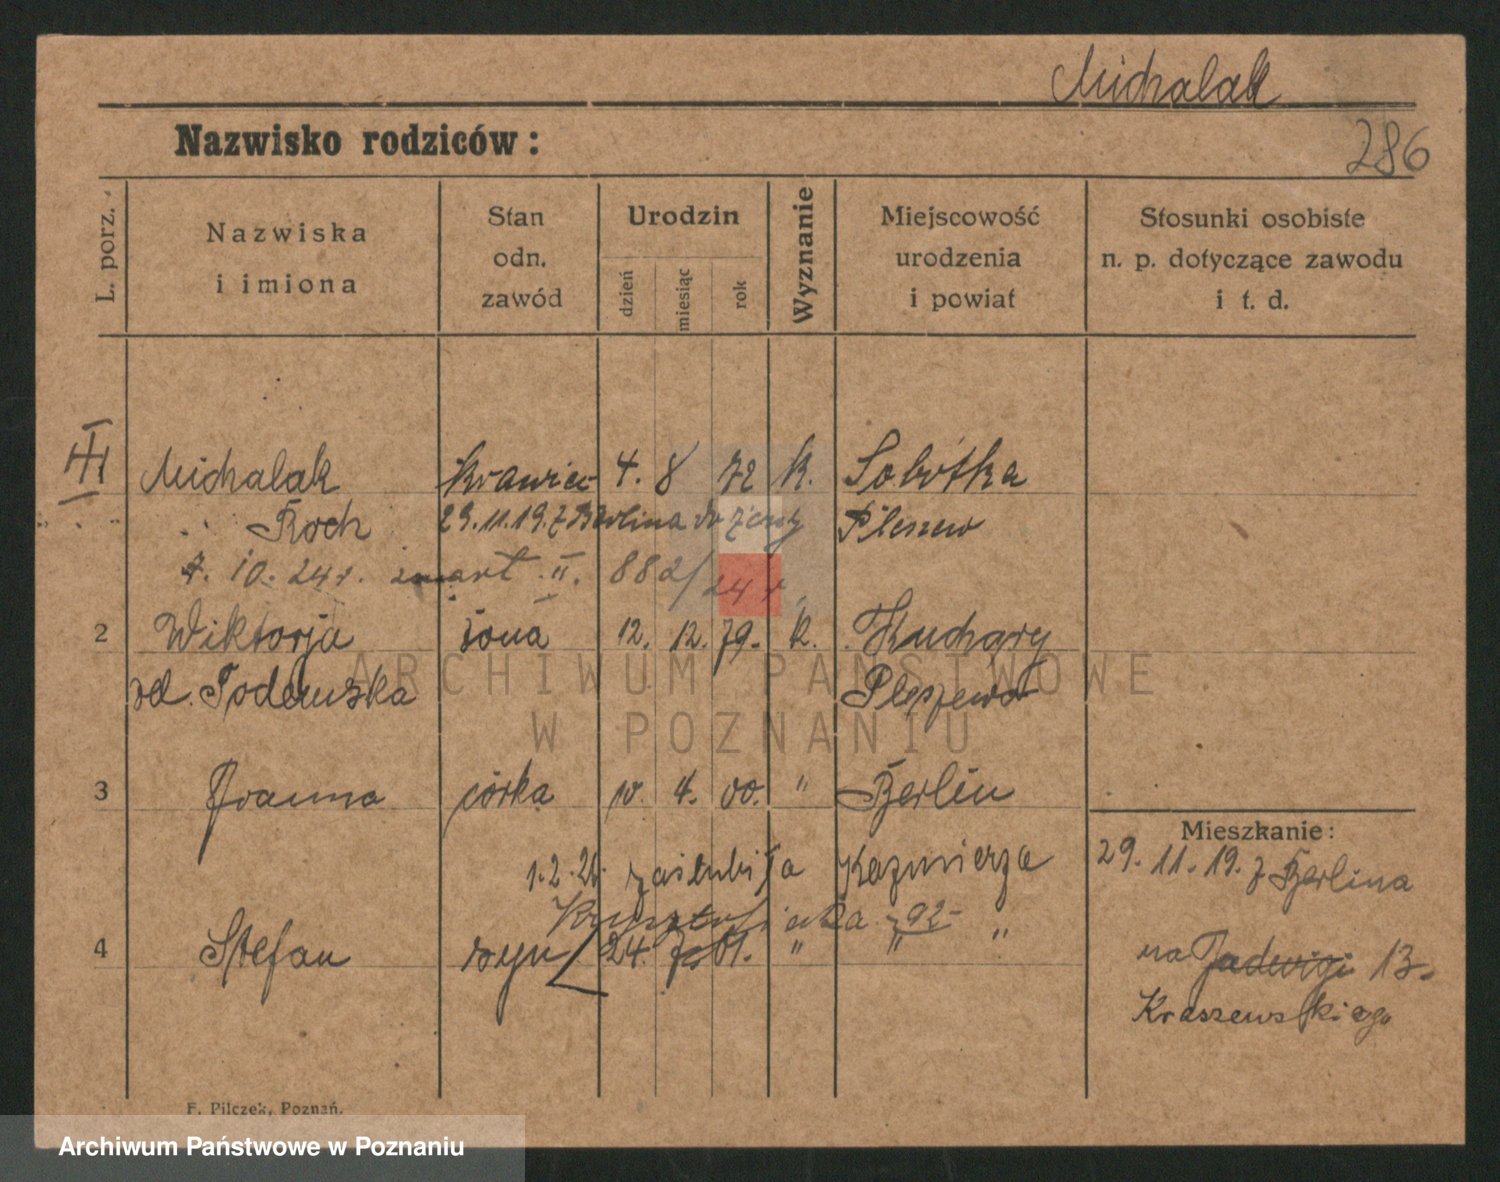 Michalak
286
Nazwisko rodziców:
L. porz.
Nazwiska
i imiona
Stan
odn.
zawód
Urodzin
dzień
miesiąc
rok
Wyznanie
Miejscowość
urodzenia
i powiat
Stosunki osobiste
n. p. dotyczące zawodu
i t. d.
III
Michalak krawiec 4. 8 72 k. Sobótka
Roch 29.11.19. z Berlina do żony Pleszew
7. 10. 24 r. zmart II. 882/24 r.
2 Wiktorja żona 12. 12. 79. k. Kuchary
Pleszewo
3 Joanna córka 10. 4. 00. " Berlin
Mieszkanie:
1.2.26. zaślubiła Kazmierza
29. 11. 19. z Berlina
92
4 Stefan syn 24. 01. " " "
na Jadwigi 13.
Kraszewskiego
F. Pilczek, Poznań.
ARCHIWUM PAŃSTWOWE
W POZNANIU
Archiwum Państwowe w Poznaniu